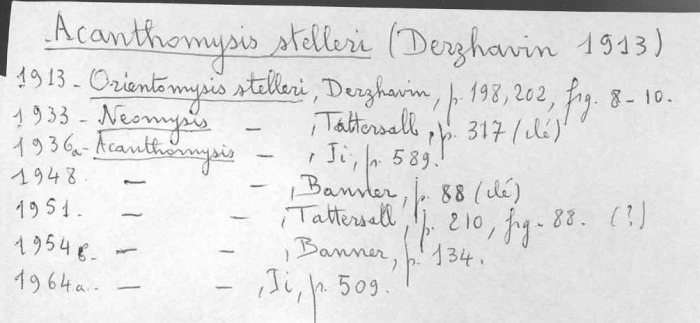 Acanthomysis stelleri (Derzhavin 1913)
1913 - Orientomysis stelleri, Derzhavin, p. 198, 202, fig. 8-10.
1933 - Neomysis — , Tattersall, p. 317 (clé)
1936a - Acanthomysis — , Ii, p. 589.
1948. — — , Banner, p. 88 (clé)
1951. — — , Tattersall, p. 210, fig. 88. (?)
1954b. — — , Banner, p. 134.
1964a. — — , Ii, p. 509.